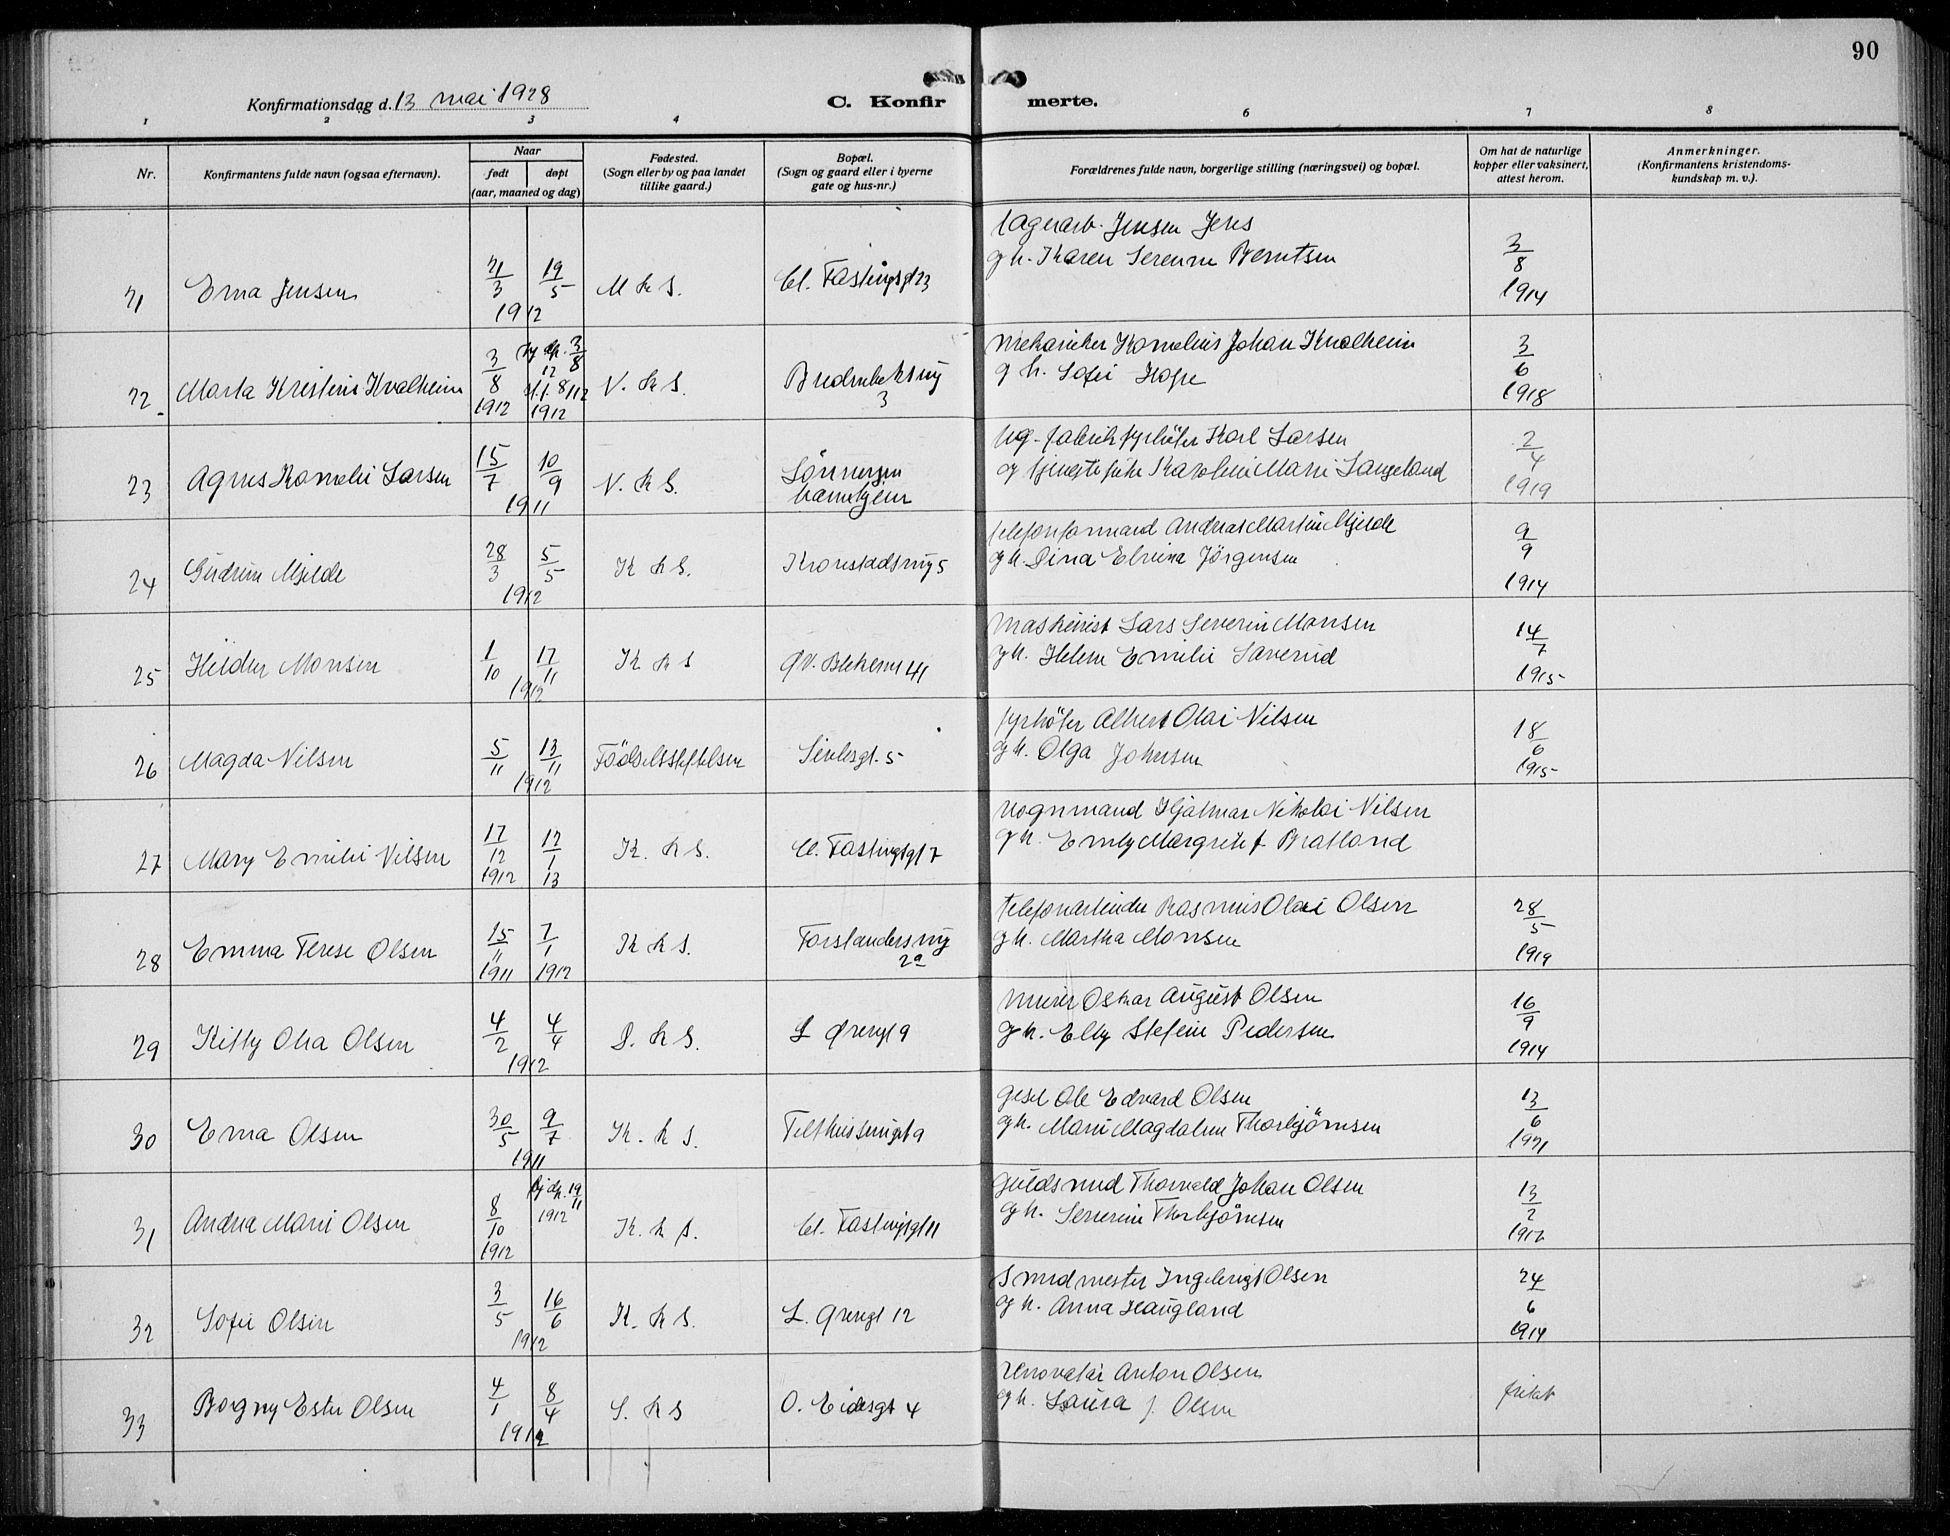 90
Konfirmationsdag d. 13 mai 1928
C. Konfirmerte.
1 2 3 4 6 7 8
Nr.
Konfirmantens fulde navn (ogsaa efternavn).
Naar
født døpt
(aar, maaned og dag)
Fødested.
(Sogn eller by og paa landet
tillike gaard.)
Bopæl.
(Sogn og gaard eller i byerne
gate og hus-nr.)
Forældrenes fulde navn, borgerlige stilling (næringsvei) og bopæl.
Om hat de naturlige
kopper eller vaksinert,
attest herom.
Anmerkninger.
(Konfirmantens kristendoms-
kundskap m. v.).
21 Erna Jensen 21/3 19/5 1912 M k S. Cl. Fastingsgt 23
Lagerarb. Jensen Jens
og h. Karen Serenne Berntsen
3/8 1914
22 Marta Kristine Kvalheim 3/8 1912 Hj dp. 3/8 12 8/12 1912 N. k S. 3
Mekaniker Kornelius Johan Kvalheim
og h. Sofie Hope
3/6 1918
23 Agnes Kornelie Larsen 15/7 10/9 1911 N. k S. barnehjem
Ug. fabrikfyrbøter Karl Larsen
og tjenestepike Karoline Marie Langeland
2/4 1919
24 Gudrun Mjelde 28/3 5/5 1912 K k S. Kronstadsvng 5
telefonformand Andreas Martin Mjelde
og h. Dina Elvina Jörgensen
9/9 1914
25 Hildur Monsen 1/10 17/11 1912 K k S Øv. Blekevei 41
Maskinist Lars Severin Monsen
og h. Helene Emilie Saverud
14/7 1915
26 Magda Nilsen 5/11 13/11 1912 Födselsstiftelsen 5
fyrböter Albert Olai Nilsen
og h. Olga Johnsen
18/6 1915
27 Mary Emilie Nilsen 17/12 1912 12/1 13 K. k S. Cl. Fastingsgt 7
Vognmand Hjalmar Nikolai Nilsen
og h. Emly Margrethe f. Bratland
28 Emma Terese Olsen 15/11 1911 7/1 1912 K k S. Forstandersvng 2a
Telefonarbeider Rasmus Olai Olsen
og h. Martha Monsen
28/5 1919
29 Kitty Olva Olsen 4/2 4/4 1912 D. k S. L Øvregt 9
Murer Oskar August Olsen
og h. Elly Stefine Pedersen
16/9 1914
30 Erna Olsen 30/5 9/7 1911 K. k S. 9
gesel Ole Edvard Olsen
og h. Marie Magdalene Thorbjörnsen
13/6 1921
31 Andrea Marie Olsen 8/10 1912 Hj dp. 19/11 1912 K. k S. Cl. Fastingsgt 11
Guldsmed Thorvald Johan Olsen
og h. Severine Thorbjörnsen
13/2 1917
32 Sofie Olsen 3/5 16/6 1912 K. k S. L. Øvregt 12
Smedmester Ingebrigt Olsen
og h. Anna Haugland
24/6 1914
33 Borgny Ester Olsen 4/1 8/4 1912 S. k S O. Eidesgt 4
Renovatør Anton Olsen
og h. Laura J. Olsen
fritat